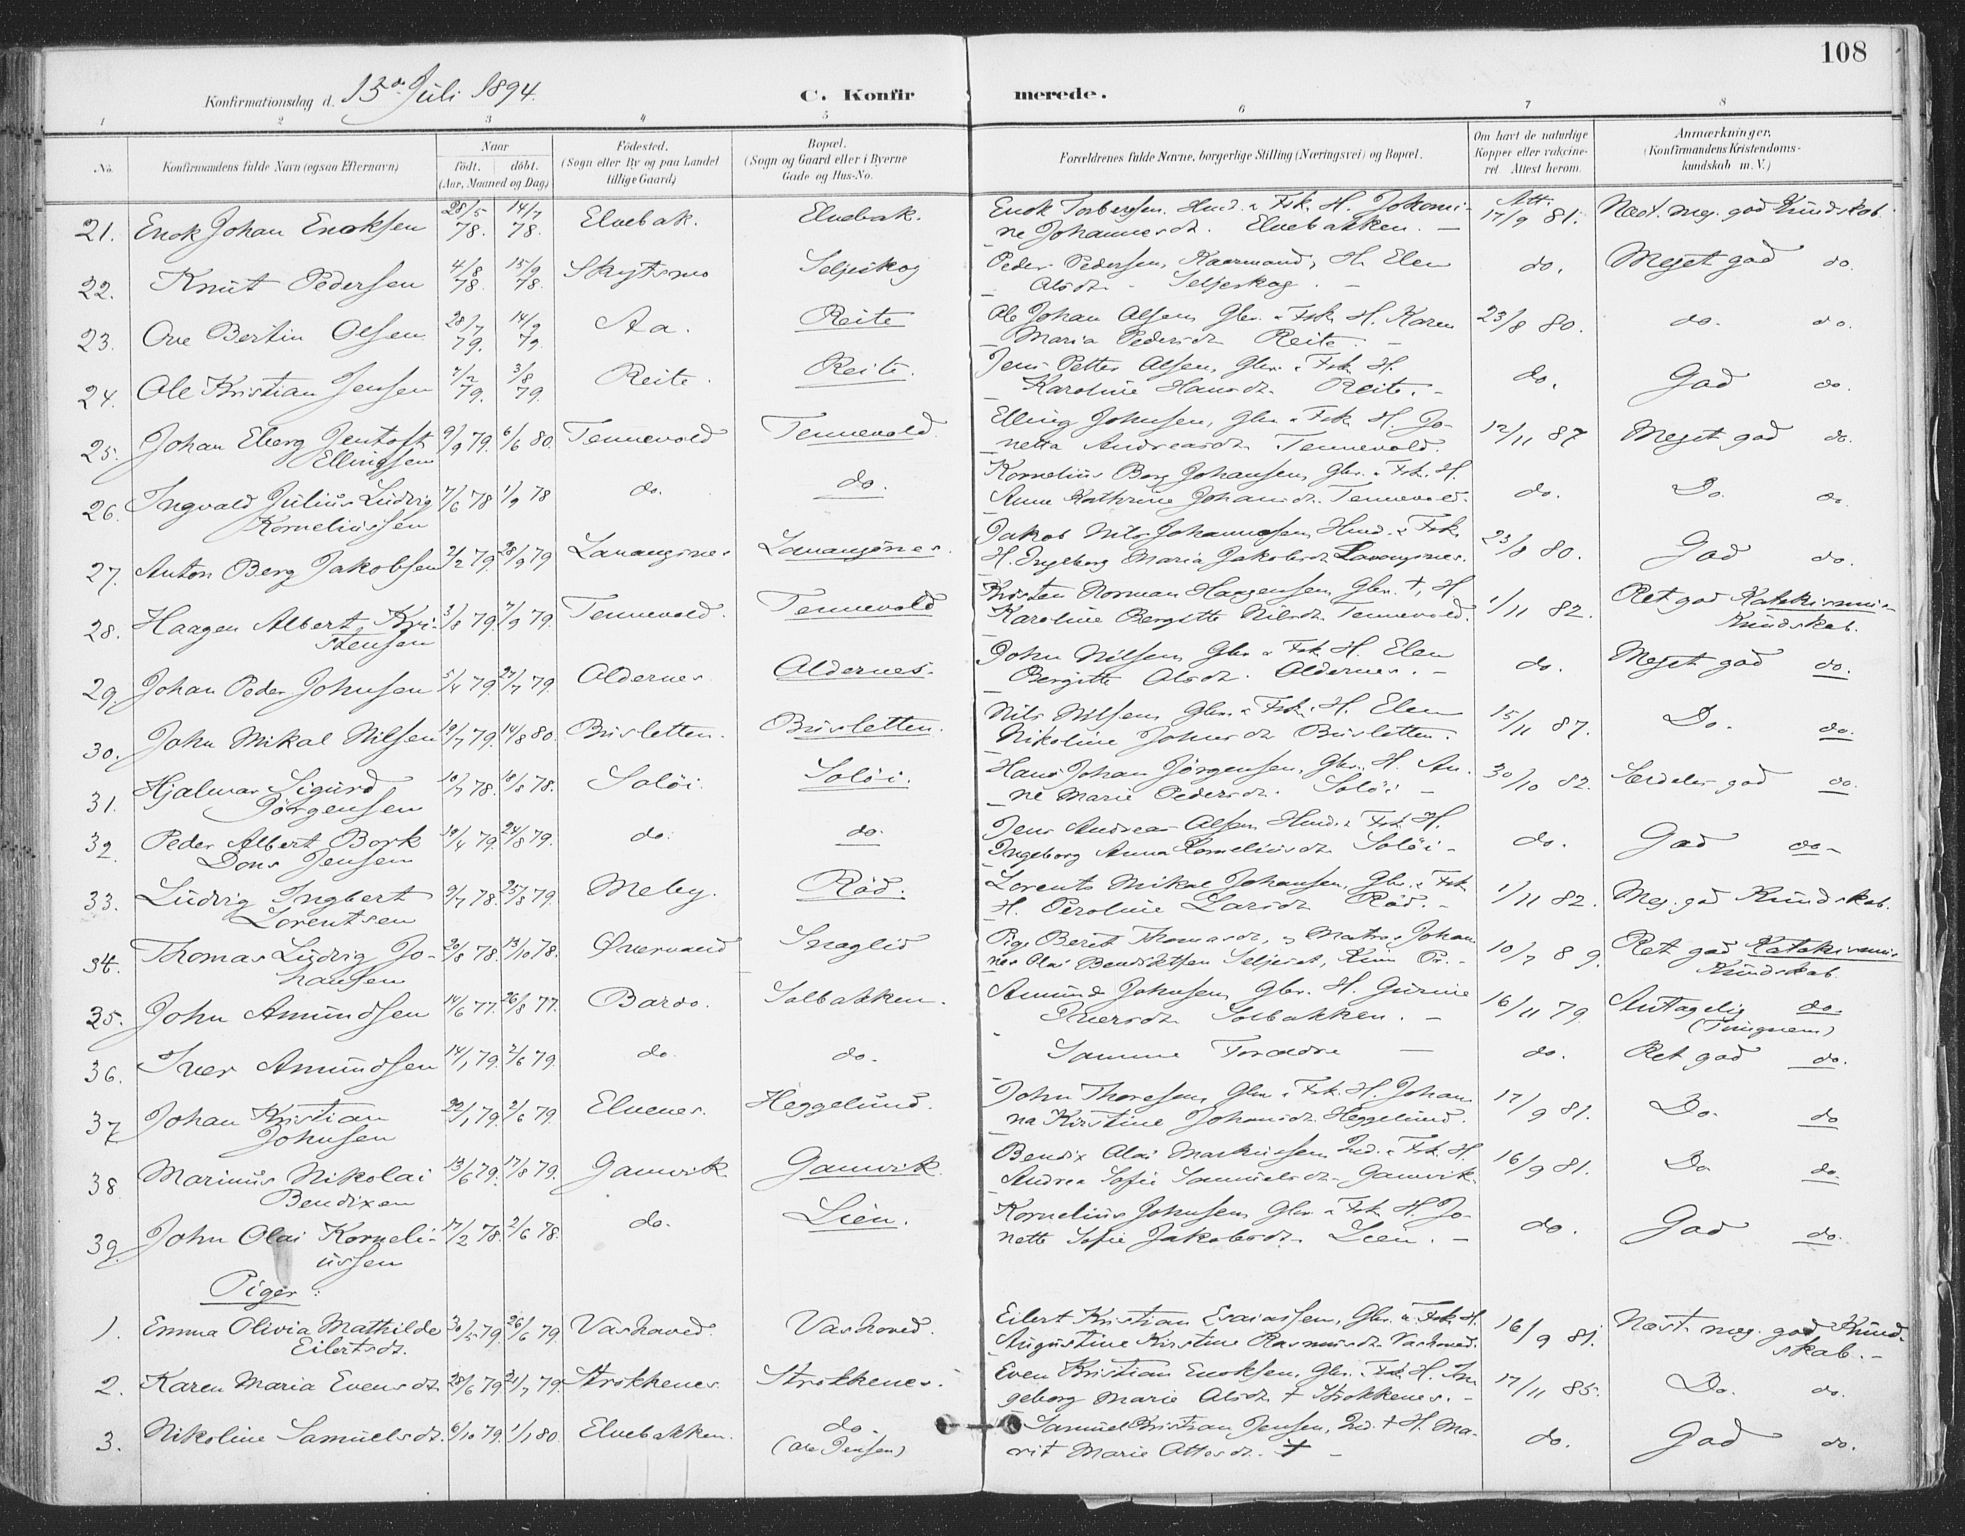 108
Konfirmationsdag d. 15de Juli 1894.
C. Konfirmerede.
1 2 3 4 5 6 7 8
No. Konfirmandens fulde Navn (ogsaa Efternavn) Naar födt. döbt. (Aar, Maaned og Dag) Födested. (Sogn eller By og paa Landet tillige Gaard) Bopæl. (Sogn og Gaard eller i Byerne Gade og Hus-No. Forældrenes fulde Navne, borgerlige Stilling (Næringsvei) og Bopæl. Om havt de naturlige Kopper eller vakcineret Attest herom. Anmærkninger. (Konfirmandens Kristendomskundskab m. V.)
21. Enok Johan Enoksen 28/5 78. 14/7 78. Elvebak. Elvebak. Enok Torbergsen Hmd. & Fsk. H. Johanne Johannesdt. Elvebakken. — Att. 17/9 81. Næst. meg. god Kundskab.
22. Knut Pedersen 4/8 78. 15/9 78. Skytsmo Seljeskog Peder Pedersen, Kaarmand, H. Elen Olsdt. - Seljeskog. — do. Meget god do.
23. Ove Bertin Olsen 28/7 79. 14/9 79. Aa. Reite Ole Johan Olsen Gbr. & Fsk. H. Karen Maria Pedersdt. Reite. — 23/8 80. do. do.
24. Ole Kristian Jensen 2/2 79. 3/8 79. Reite. Reite. Jens Petter Olsen, Gbr. & Fsk. H. Karoline Hansdt. Reite. - do. God do.
25. Johan Eberg Jentoft Ellingsen 9/9 79. 6/6 80. Tennevold Tennevold. Elling Johnsen, Gbr. & Fsk. H. Jonetta Andreasdt. Tennevold. 12/11 87 Meget god do.
26. Ingvald Julius Ludvig Korneliussen 7/6 78 1/9 78 do. do. Kornelius Berg Johansen, Gbr. & Fsk. H. Anne Kathrine Johansdt. Tennevold. do. Do. do.
27. Anton Berg Jakobsen 2/2 79. 28/9 79 Lavangsnes Lavangsnes. Jakob Nils Johannesen, Hmd. & Fsk. H. Ingeborg Maria Jakobsdt. Lavangsnes. 23/8 80. God do.
28. Haagen Albert Kristensen 3/8 79. 7/9 79. Tennevold. Tennevold Kristen Norman Haagensen, Gbr. †, H. Karoline Bergitte Nilsdt. Tennevold. 1/11 82. Ret god Katekismuskundskab.
29. Johan Peder Johnsen 5/4 79. 27/7 79. Aldernes. Aldernes. John Nilsen, Gbr. & Fsk. H. Elen Bergitte Olsdt. Aldernes. - do. Meget god do.
30. John Mikal Nilsen 19/7 79. 14/8 80. Brusletten. Brusletten. Nils Nilsen, Gbr. & Fsk. H. Elen Nikoline Johnsdt. Brusletten. 15/11 87. Do. do.
31. Hjalmar Sigurd Jörgensen 10/7 78. 18/8 78. Solöi. Solöi. Hans Johan Jörgensen, Gbr. H. Anne Marie Pedersdt. Solöi — 30/10 82. Særdeles god do.
32. Peder Albert Bork Dons Jensen 19/4 79. 24/8 79. do. do. Jens Andreas Olsen Hmd. & Fsk. H. Ingeborg Anna Korneliusdt. Solöi — do. God do -
33. Ludvig Ingbert Lorentsen 9/7 78. 25/8 79. Meby. Röd. Lorents Mikal Johansen, Gbr. & Fsk. H. Peroline Larsdt. Röd. - 1/11 82. Meg. god Kundskab.
34. Thomas Ludvig Johansen 20/8 78. 13/10 78. Övervand Snaglid Pige Berit Thomasdt., & Matros Johannes Olai Bendiktsen Seljeset, Pr. - 10/7 89. Ret god Katekismuskundskab.
35. John Amundsen 14/6 77. 26/8 77. Bardo. Solbakken. Amund Johnsen, Gbr. H. Gurine Iversdt. Solbakken. — 16/11 79. Antagelig do. (Tungnem)
36. Iver Amundsen 14/1 79. 2/6 79. do. do. Samme Forældre — do. Ret god do.
37. Johan Kristian Johnsen 22/1 79. 2/6 79. Elvenes. Heggelund. John Thoresen, Gbr. & Fsk. H. Johanna Kirstine Johansdt. Heggelund. 17/9 81. Do. do
38. Marinus Nikolai Bendixen 13/6 79. 17/8 79. Gamvik Gamvik. Bendix Olai Markussen, Ind. & Fsk. H. Andrea Sofie Samuelsdt. Gamvik. 16/9 81. Do do.
39. John Olai Korneliussen 17/2 78. 2/6 78. do. Lien. Kornelius Johnsen, Gbr. & Fsk. H. Jonette Sofie Jakobsdt. Lien. — do. God do.
Piger:
1. Emma Olivia Mathilde Eilertsdt. 30/5 79. 26/6 79. Vashoved. Vashoved. Eilert Kristian Esaiassen, Gbr. & Fsk. H. Augustine Kirstine Rasmusdt. Vashoved. 16/9 81. Næst. meg. god Kundskab. -
2. Karen Maria Evensdt. 28/6 79. 21/7 79. Strokkenes. Strokkenes. Even Kristian Enoksen, Gbr. & Fsk. H. Ingeborg Marie Olsdt. † Strokkenes. - 17/11 85. Do. do.
3. Nikoline Samuelsdt. 6/10 79. 1/1 80. Elvebakken. do. (Ole Jensen) Samuel Kristian Jensen, Ind. † H. Marit Marie Ottosdt. † - do. God do.